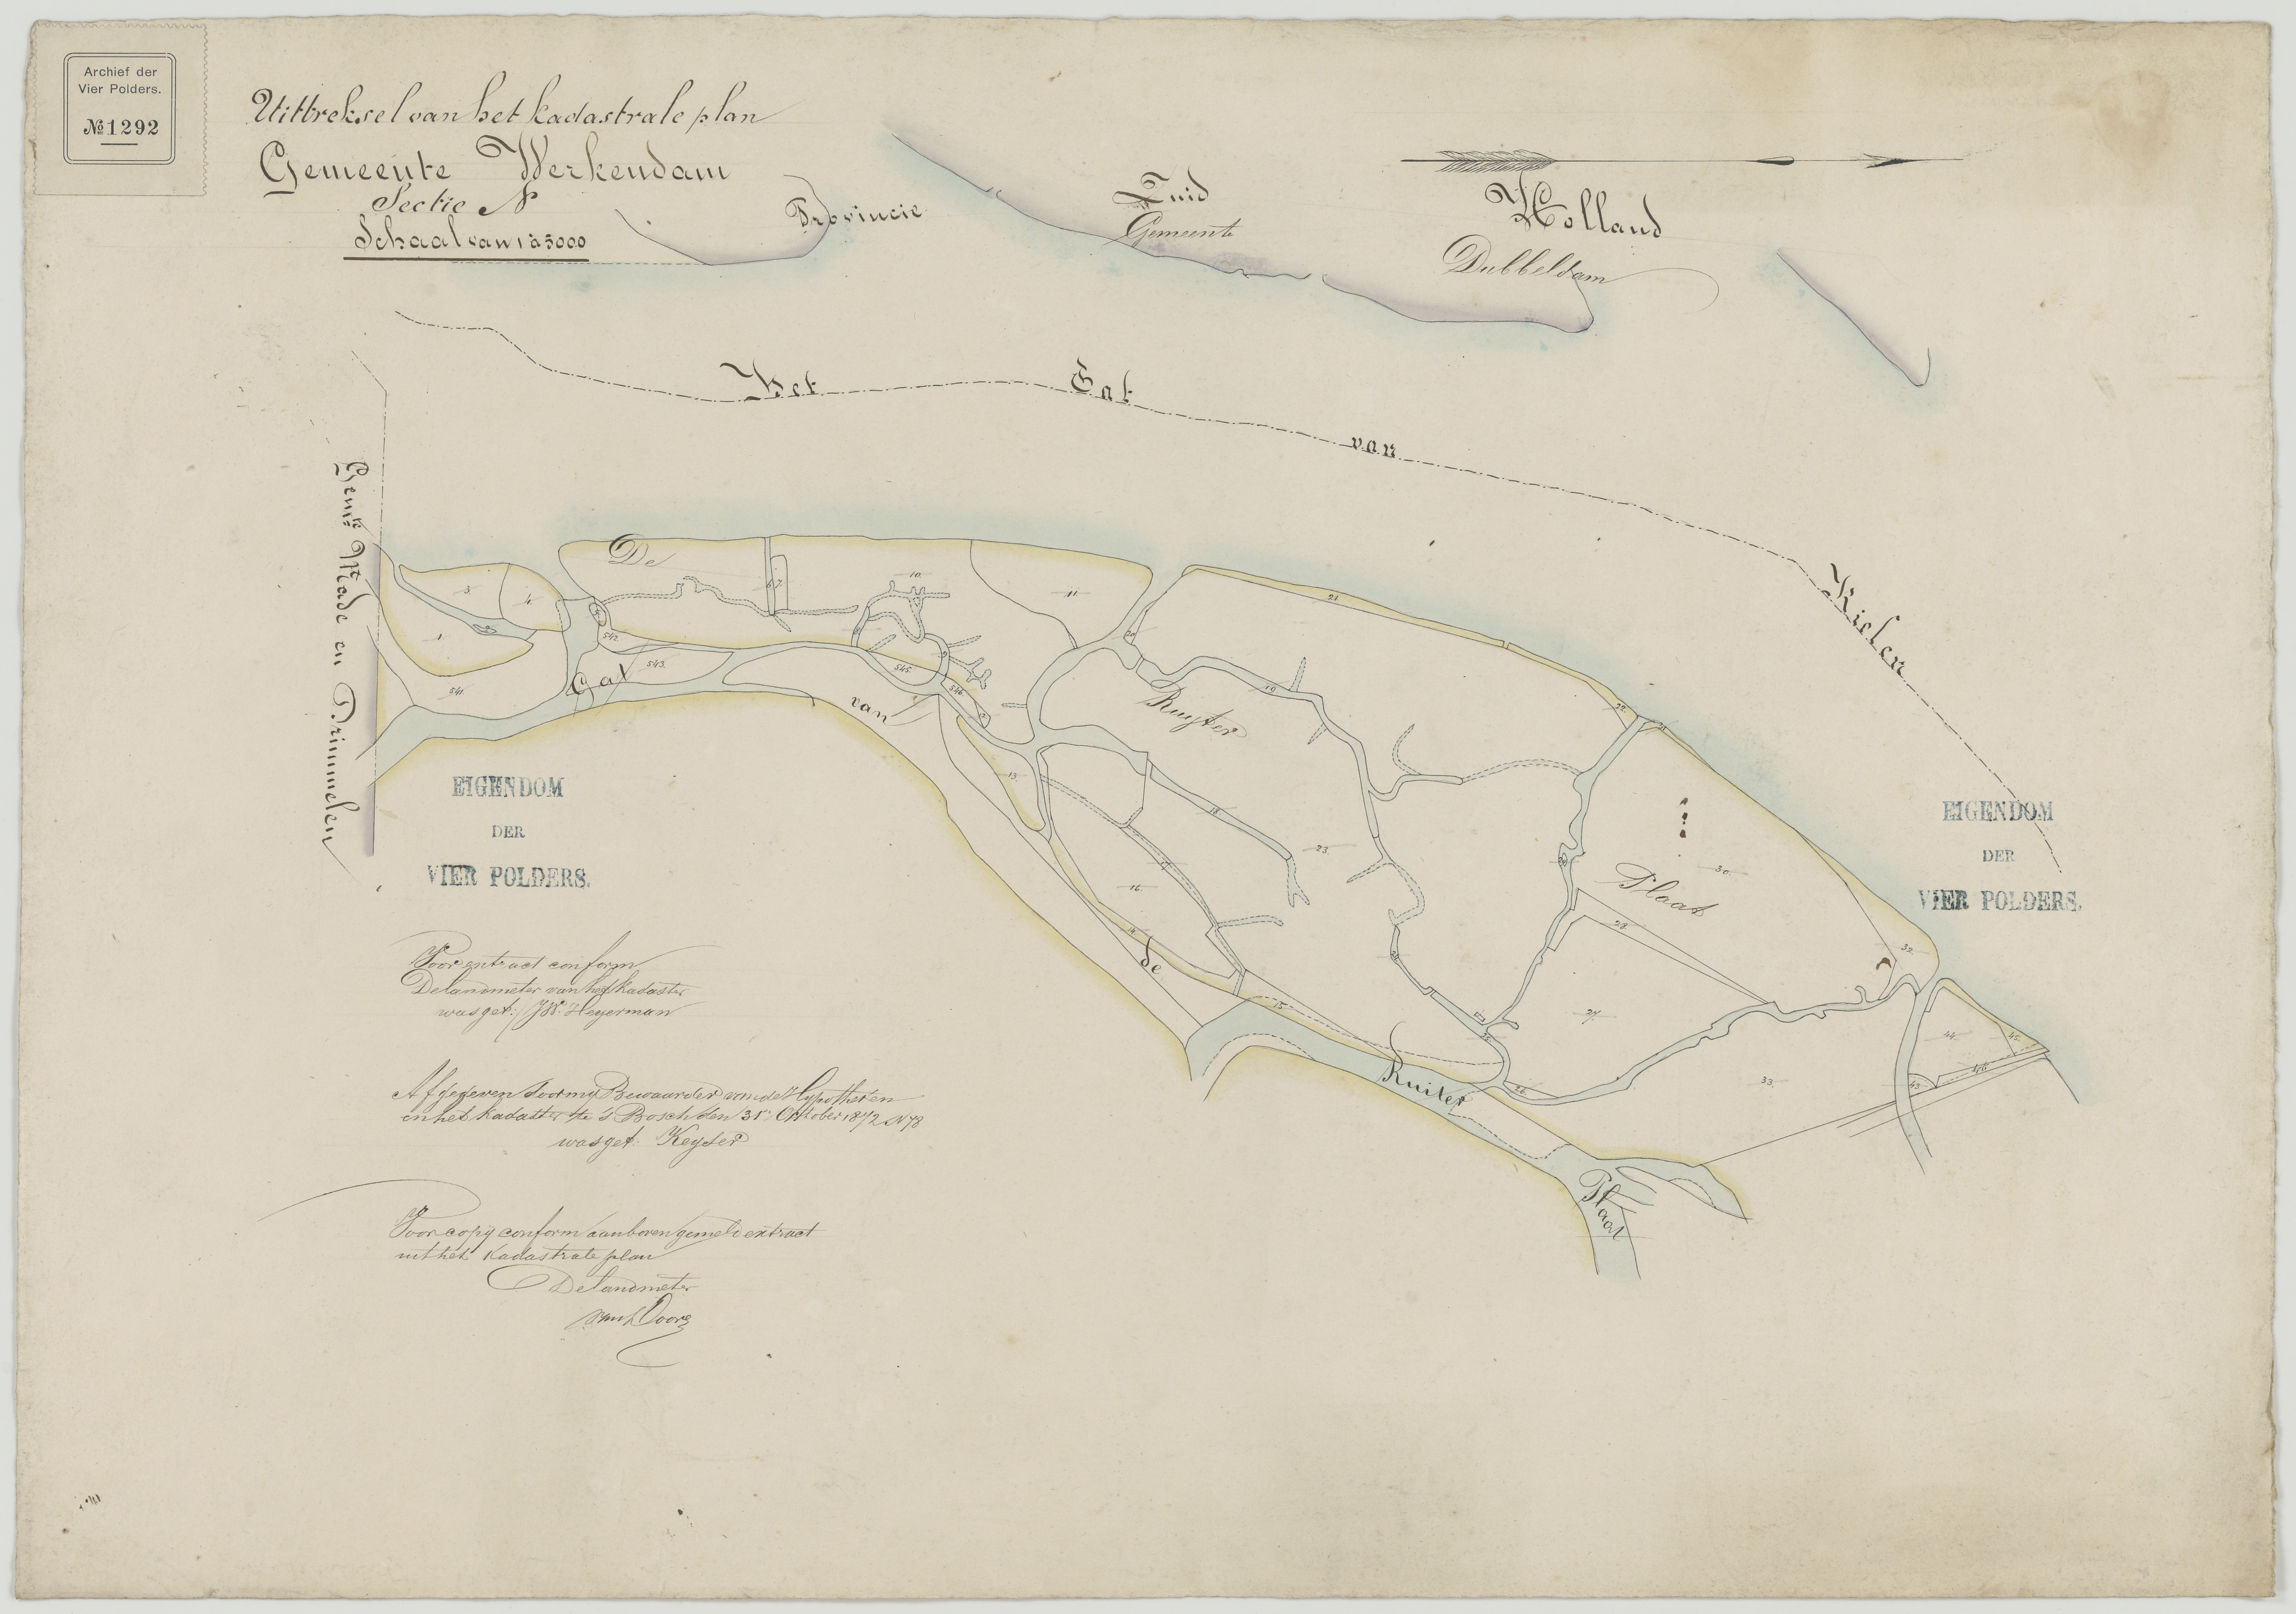 Archief der
Vier Polders.
№ 1292
Uittreksel van het kadastrale plan
Gemeente Werkendam
Sectie N
Schaal van 1 à 5000
Provincie Zuid Holland
Gemeente Dubbeldam
Het Gat van Kielen
Gemte Made en Drimmelen
De Ruyter Plaat
Gat van de Ruiter Plaat
3.
4.
1.
541.
542.
543.
545.
546.
10.
11.
13.
14.
15.
16.
17.
18.
19.
21.
22.
23.
26.
27.
28.
30.
32.
33.
43.
44.
45.
46.
EIGENDOM
DER
VIER POLDERS.
EIGENDOM
DER
VIER POLDERS.
Voor extract conform
De landmeter van het kadaster
was get: J.W. Heyerman
Afgegeven door my Bewaarder van de Hypotheken
en het kadaster te 's Bosch den 31n Oktober 1872 N 78
was get: Keyser
Voor copij conform aan boven gemeld extract
uit het kadastrale plan
De landmeter